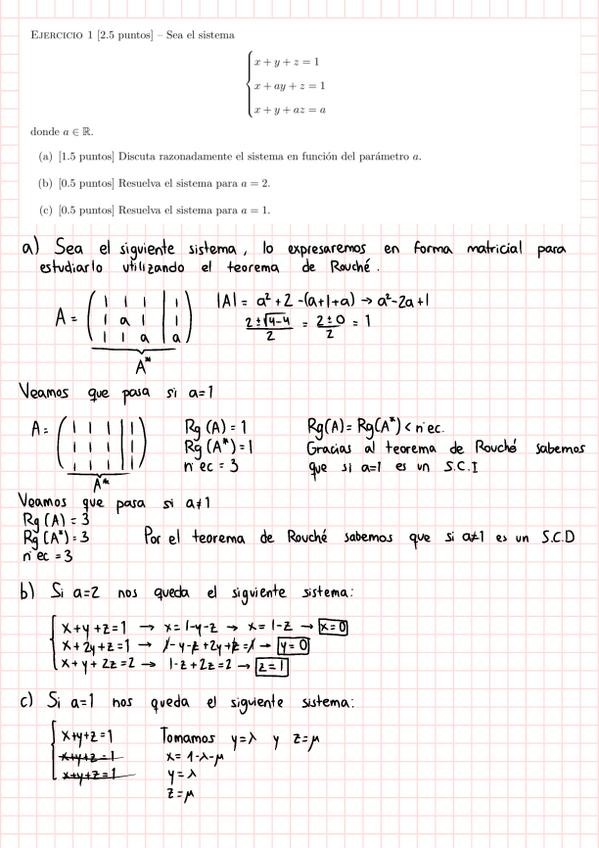 EJERCICIO 1 [2.5 puntos] – Sea el sistema
x + y + z = 1
x + ay + z = 1
x + y + az = a
donde a ∈ ℝ.
(a) [1.5 puntos] Discuta razonadamente el sistema en función del parámetro a.
(b) [0.5 puntos] Resuelva el sistema para a = 2.
(c) [0.5 puntos] Resuelva el sistema para a = 1.
a) Sea el siguiente sistema, lo expresaremos en forma matricial para
estudiarlo utilizando el teorema de Rouché.
A = ( 1 1 1 | 1
1 a 1 | 1
1 1 a | a )
A*
|A| = a²+2-(a+1+a) → a²-2a+1
2±√4-4 / 2 = 2±0 / 2 = 1
Veamos que pasa si a=1
A = ( 1 1 1 | 1
1 1 1 | 1
1 1 1 | 1 )
A*
Rg (A) = 1
Rg (A*) = 1
nº ec = 3
Rg(A) = Rg(A*) < nº ec.
Gracias al teorema de Rouché sabemos
que si a=1 es un S.C.I
Veamos que pasa si a≠1
Rg (A) = 3
Rg (A*) = 3
nº ec = 3
Por el teorema de Rouché sabemos que si a≠1 es un S.C.D
b) Si a=2 nos queda el siguiente sistema:
x+y+z=1 → x=1-y-z → x=1-z → x=0
x+2y+z=1 → 1-y-z+2y+z=1 → y=0
x+y+2z=2 → 1-z+2z=2 → z=1
c) Si a=1 nos queda el siguiente sistema:
x+y+z=1
x+y+z=1
x+y+z=1
Tomamos y=λ y z=μ
x= 1-λ-μ
y=λ
z=μ